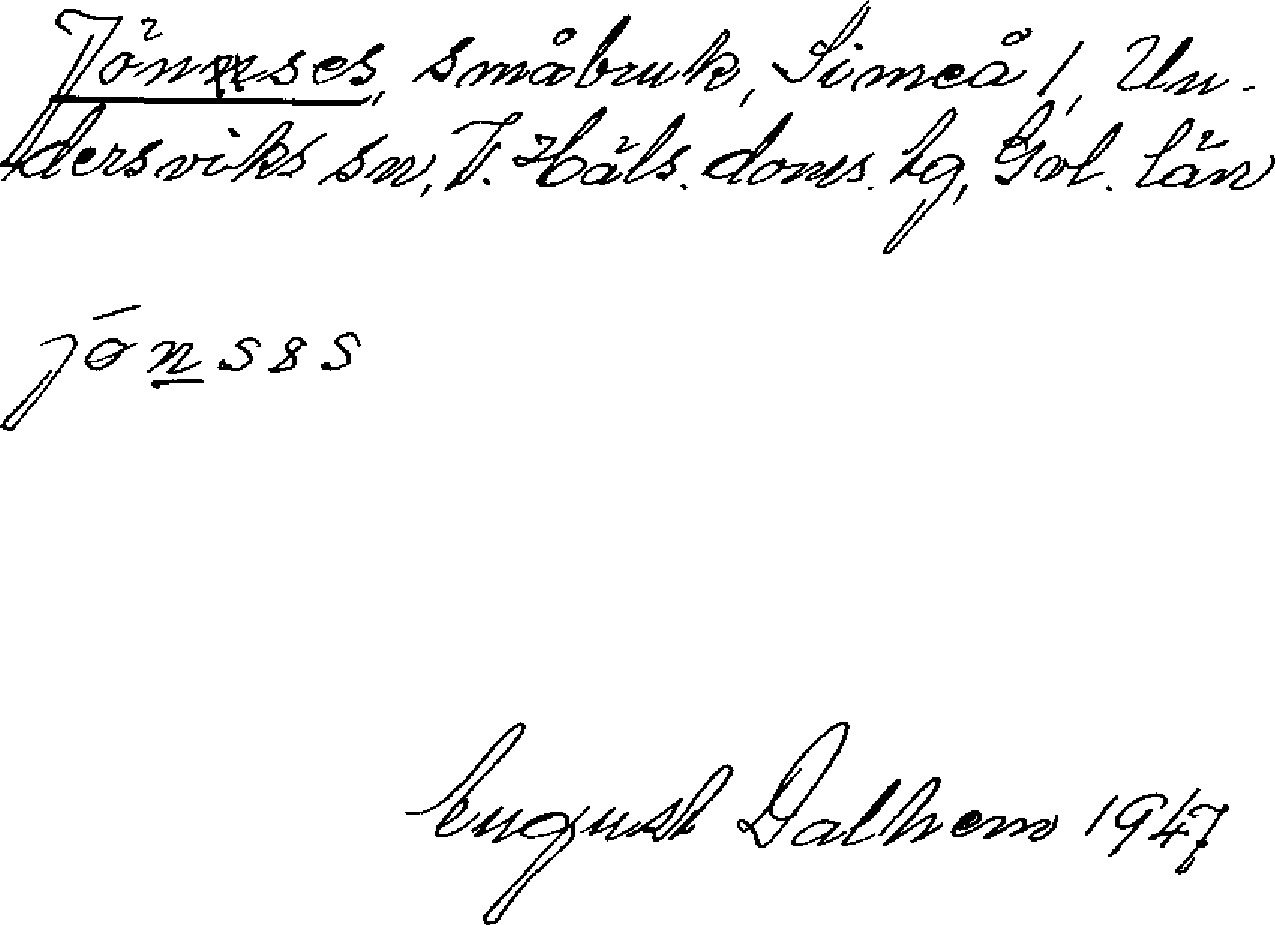 Jönses, småbruk, Simeå 1, Un-
dersviks sn, V. Häls. doms. tg, Gvl. län
jo̅n̲sɛs
August Dalhem 1947